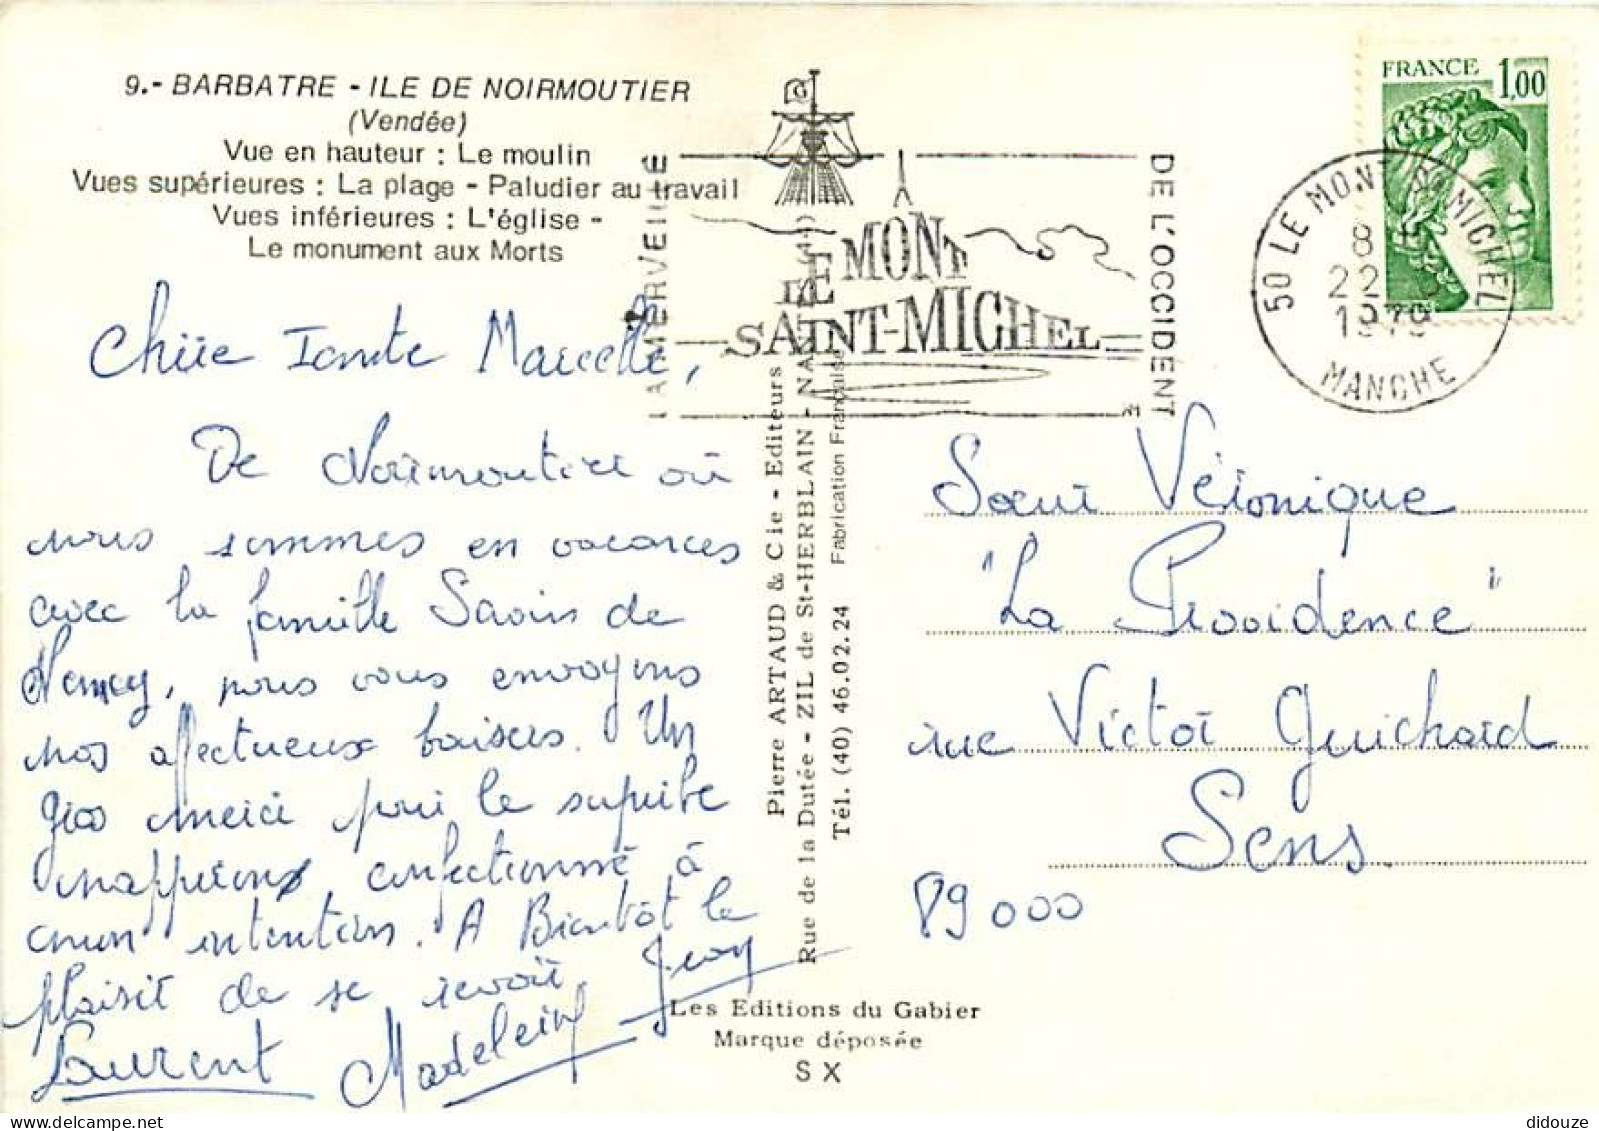 9.- BARBATRE - ILE DE NOIRMOUTIER
(Vendée)
Vue en hauteur : Le moulin
Vues supérieures : La plage - Paludier au travail
Vues inférieures : L'église -
Le monument aux Morts
Chère Tante Marcelle,
De Noirmoutier où
nous sommes en vacances
avec la famille Savin de
Nancy, nous vous envoyons
nos affectueux baisers. Un
gros merci pour le superbe
napperon confectionné à
mon intention. A Bientôt le
plaisir de se revoir.
Laurent Madeleine Jean
LA MERVEILLE
LE MONT
SAINT-MICHEL
DE L'OCCIDENT
50 LE MONT-ST-MICHEL
8 H
22
1979
MANCHE
FRANCE 1,00
Pierre ARTAUD & Cie - Editeurs
Rue de la Dutée - ZIL de St-HERBLAIN - NANTES (44)
Tél. (40) 46.02.24 Fabrication Française
Les Editions du Gabier
Marque déposée
S X
Sœur Véronique
"La Providence"
rue Victor Guichard
Sens.
89000
didouze